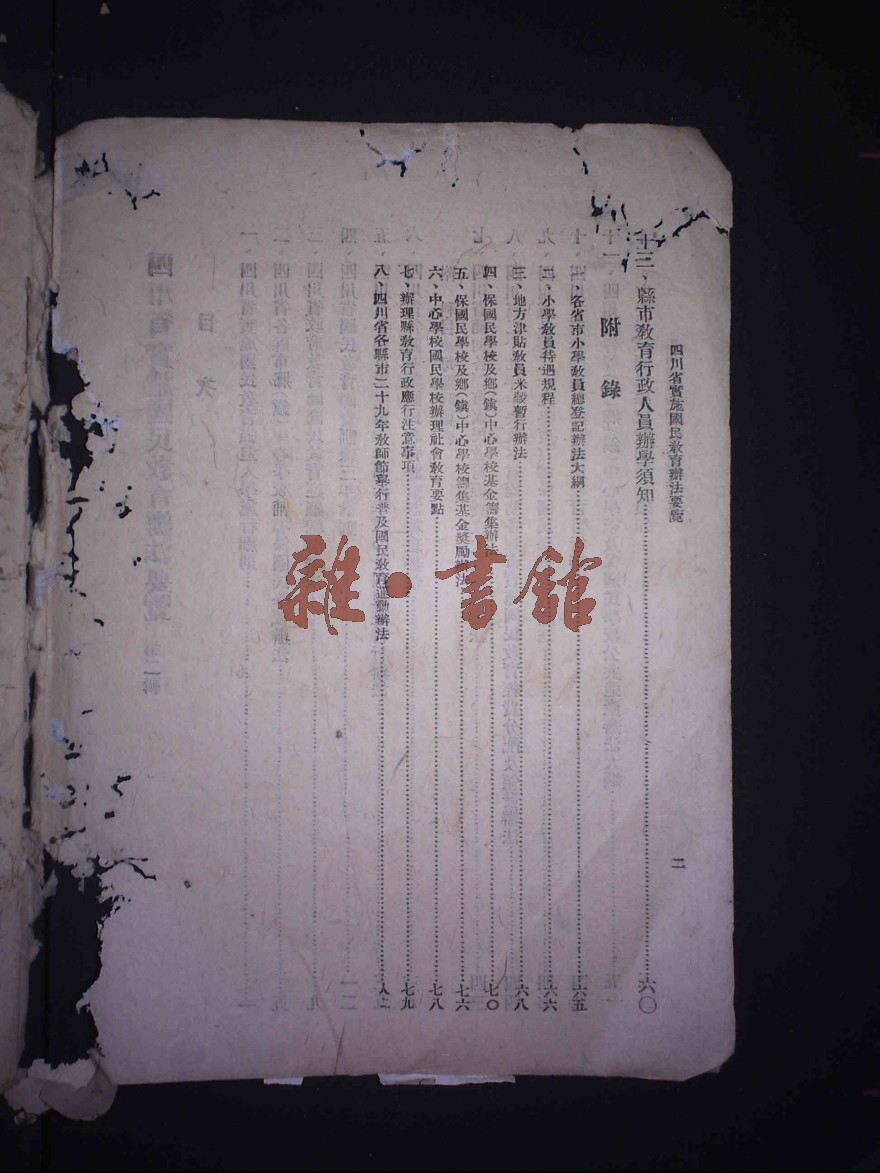 四川省實施國民教育辦法要覽
二
十三、縣市教育行政人員辦學須知……六〇
附錄
一、各省市小學教員總登記辦法大綱……六五
二、小學教員待遇規程……六六
三、地方津貼教員米穀暫行辦法……六八
四、保國民學校及鄉(鎮)中心學校基金籌集辦法……七〇
五、保國民學校及鄉(鎮)中心學校籌集基金獎勵辦法……七六
六、中心學校國民學校辦理社會教育要點……七八
七、辦理縣教育行政應行注意事項……七九
八、四川省各縣市二十九年教師節舉行普及國民教育運動辦法……八二
雜·書館